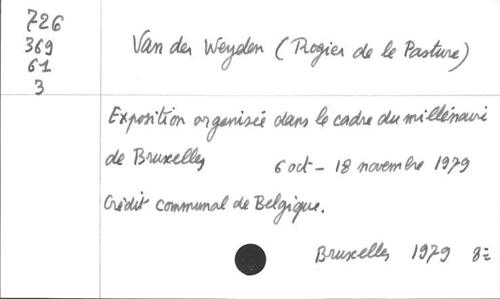 726
369
61
3
Van der Weyden (Rogier de le Pasture)
Exposition organisée dans le cadre du millénaire
de Bruxelles 6 oct - 18 novembre 1979
Crédit communal de Belgique.
Bruxelles 1979 8=